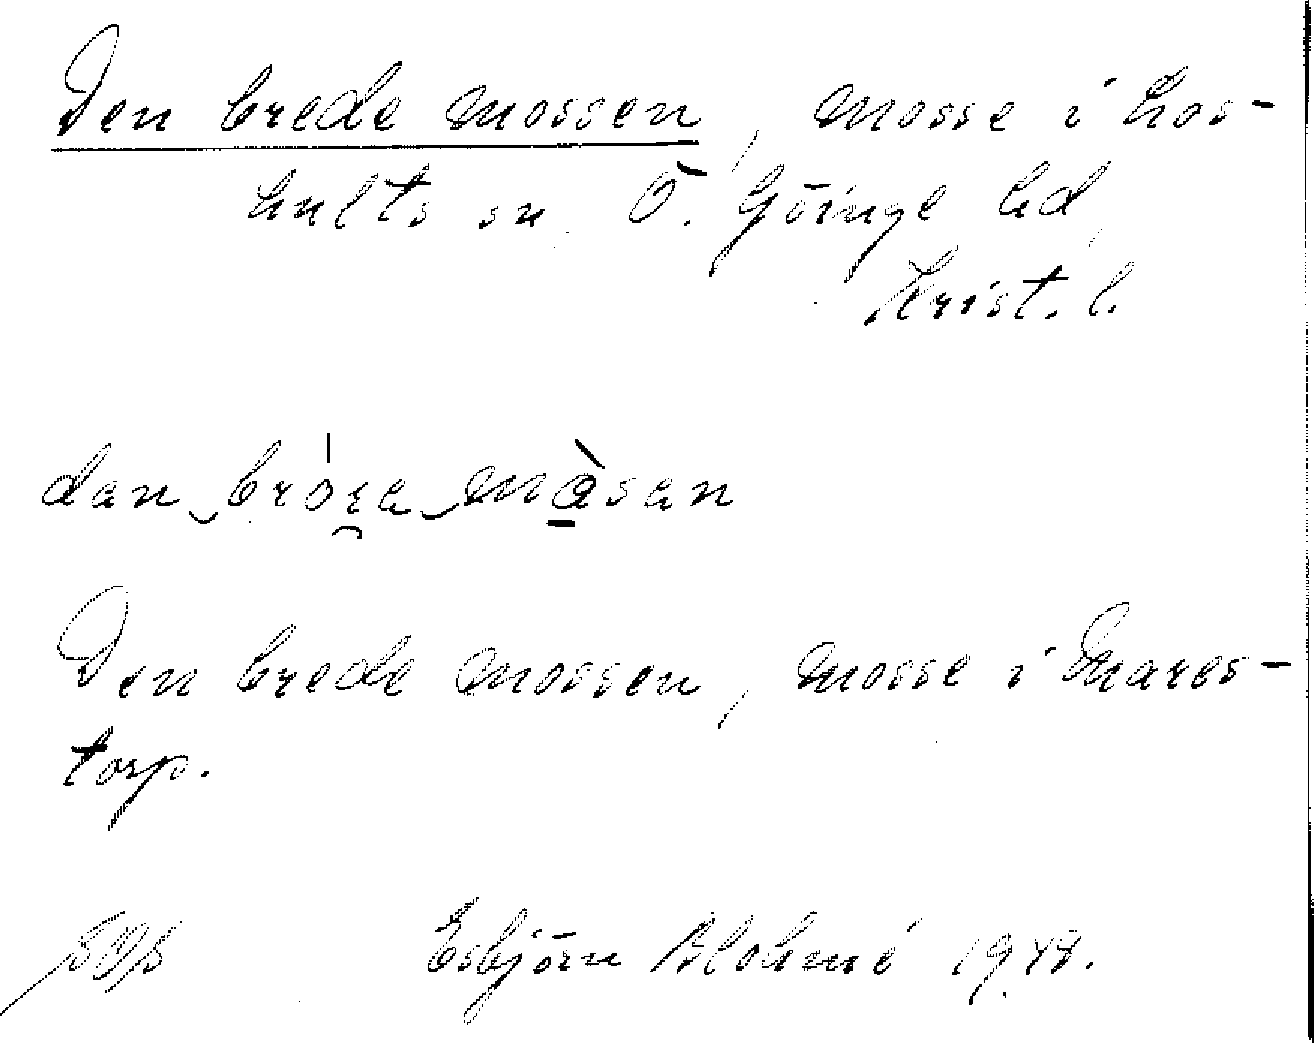 Den brede mossen, mosse i Los-
hults sn. Ö. Göinge hd,
Krist. l.
dan bröra måsan
Den brede mossen, mosse i Mares-
torp.
Esbjörn Blohmé 1948.